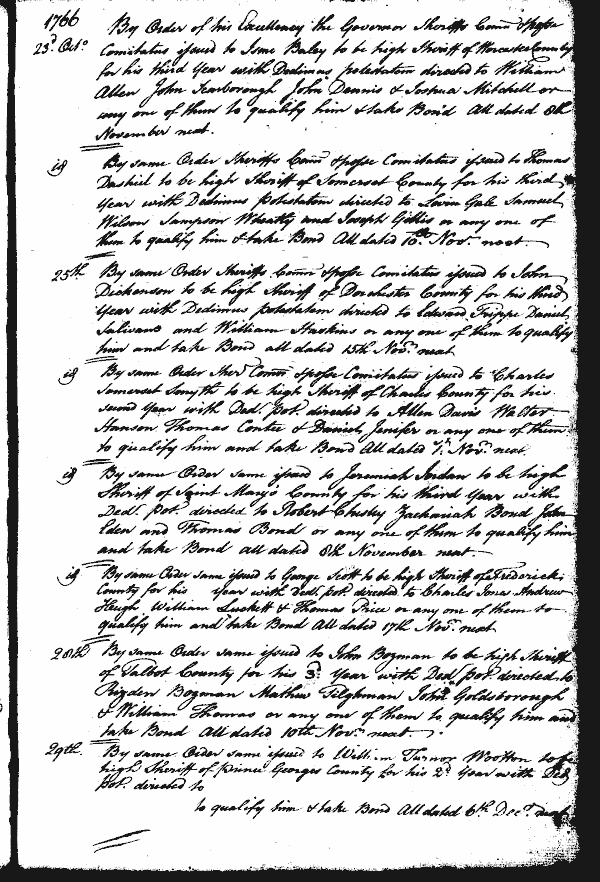 1766
23d. Octo. By Order of his Excellency the Governor Sheriffs Comn. & posse
Comitatus issued to Isme Baley to be high Sheriff of Worcester County
for his third Year with Dedimus potestatem directed to William
Allen John Scarborough John Dennis & Joshua Mitchell or
any one of them to qualify him & take Bond All dated 8th
November next.
id By same Order Sheriffs Comn. & posse Comitatus issued to Thomas
Dashiel to be high Sheriff of Somerset County for his third
Year with Dedimus potestatem directed to Levin Gale Samuel
Wilson Sampson Wheatly and Joseph Gillis or any one of
them to qualify him & take Bond All dated 10th. Nov. next
25th. By same Order Sheriffs Comn. & posse Comitatus issued to John
Dickenson to be high Sheriff of Dorchester County for his third
Year with Dedimus potestatem directed to Edward Trippe Daniel
Sulivane and William Haskins or any one of them to qualify
him and take Bond all dated 15th Novr. next
id By same Order Sher. Comn. & posse Comitatus issued to Charles
Somerset Smyth to be high Sheriff of Charles County for his
second Year with Ded. pot. directed to Allen Davis Walter
Hanson Thomas Contee & Daniel Jenifer or any one of them
to qualify him and take Bond All dated 7th. Novr. next.
id By same Order same issued to Jeremiah Jordan to be high
Sheriff of Saint Mary's County for his third Year with
Ded. pot. directed to Robert Chesley Zachariah Bond John
Eden and Thomas Bond or any one of them to qualify him
and take Bond all dated 8th November next
id By same Order same issued to George Scott to be high Sheriff of Frederick
County for his Year with Ded. pot. directed to Charles Jones Andrew
Heugh William Luckett & Thomas Price or any one of them to
qualify him and take Bond All dated 17th Novr. next
28th By same Order same issued to John Bozman to be high Sheriff
of Talbot County for his 3d. Year with Ded. pot. directed to
Risden Bozman Mathew Tilghman John Goldsborough
& William Thomas or any one of them to qualify him and
take Bond All dated 10th Novr. next
29th. By same Order same issued to William Turnor Wootton to be
high Sheriff of prince Georges County for his 2d. Year with Ded.
pot. directed to
to qualify him & take Bond All dated 6th Decr. next